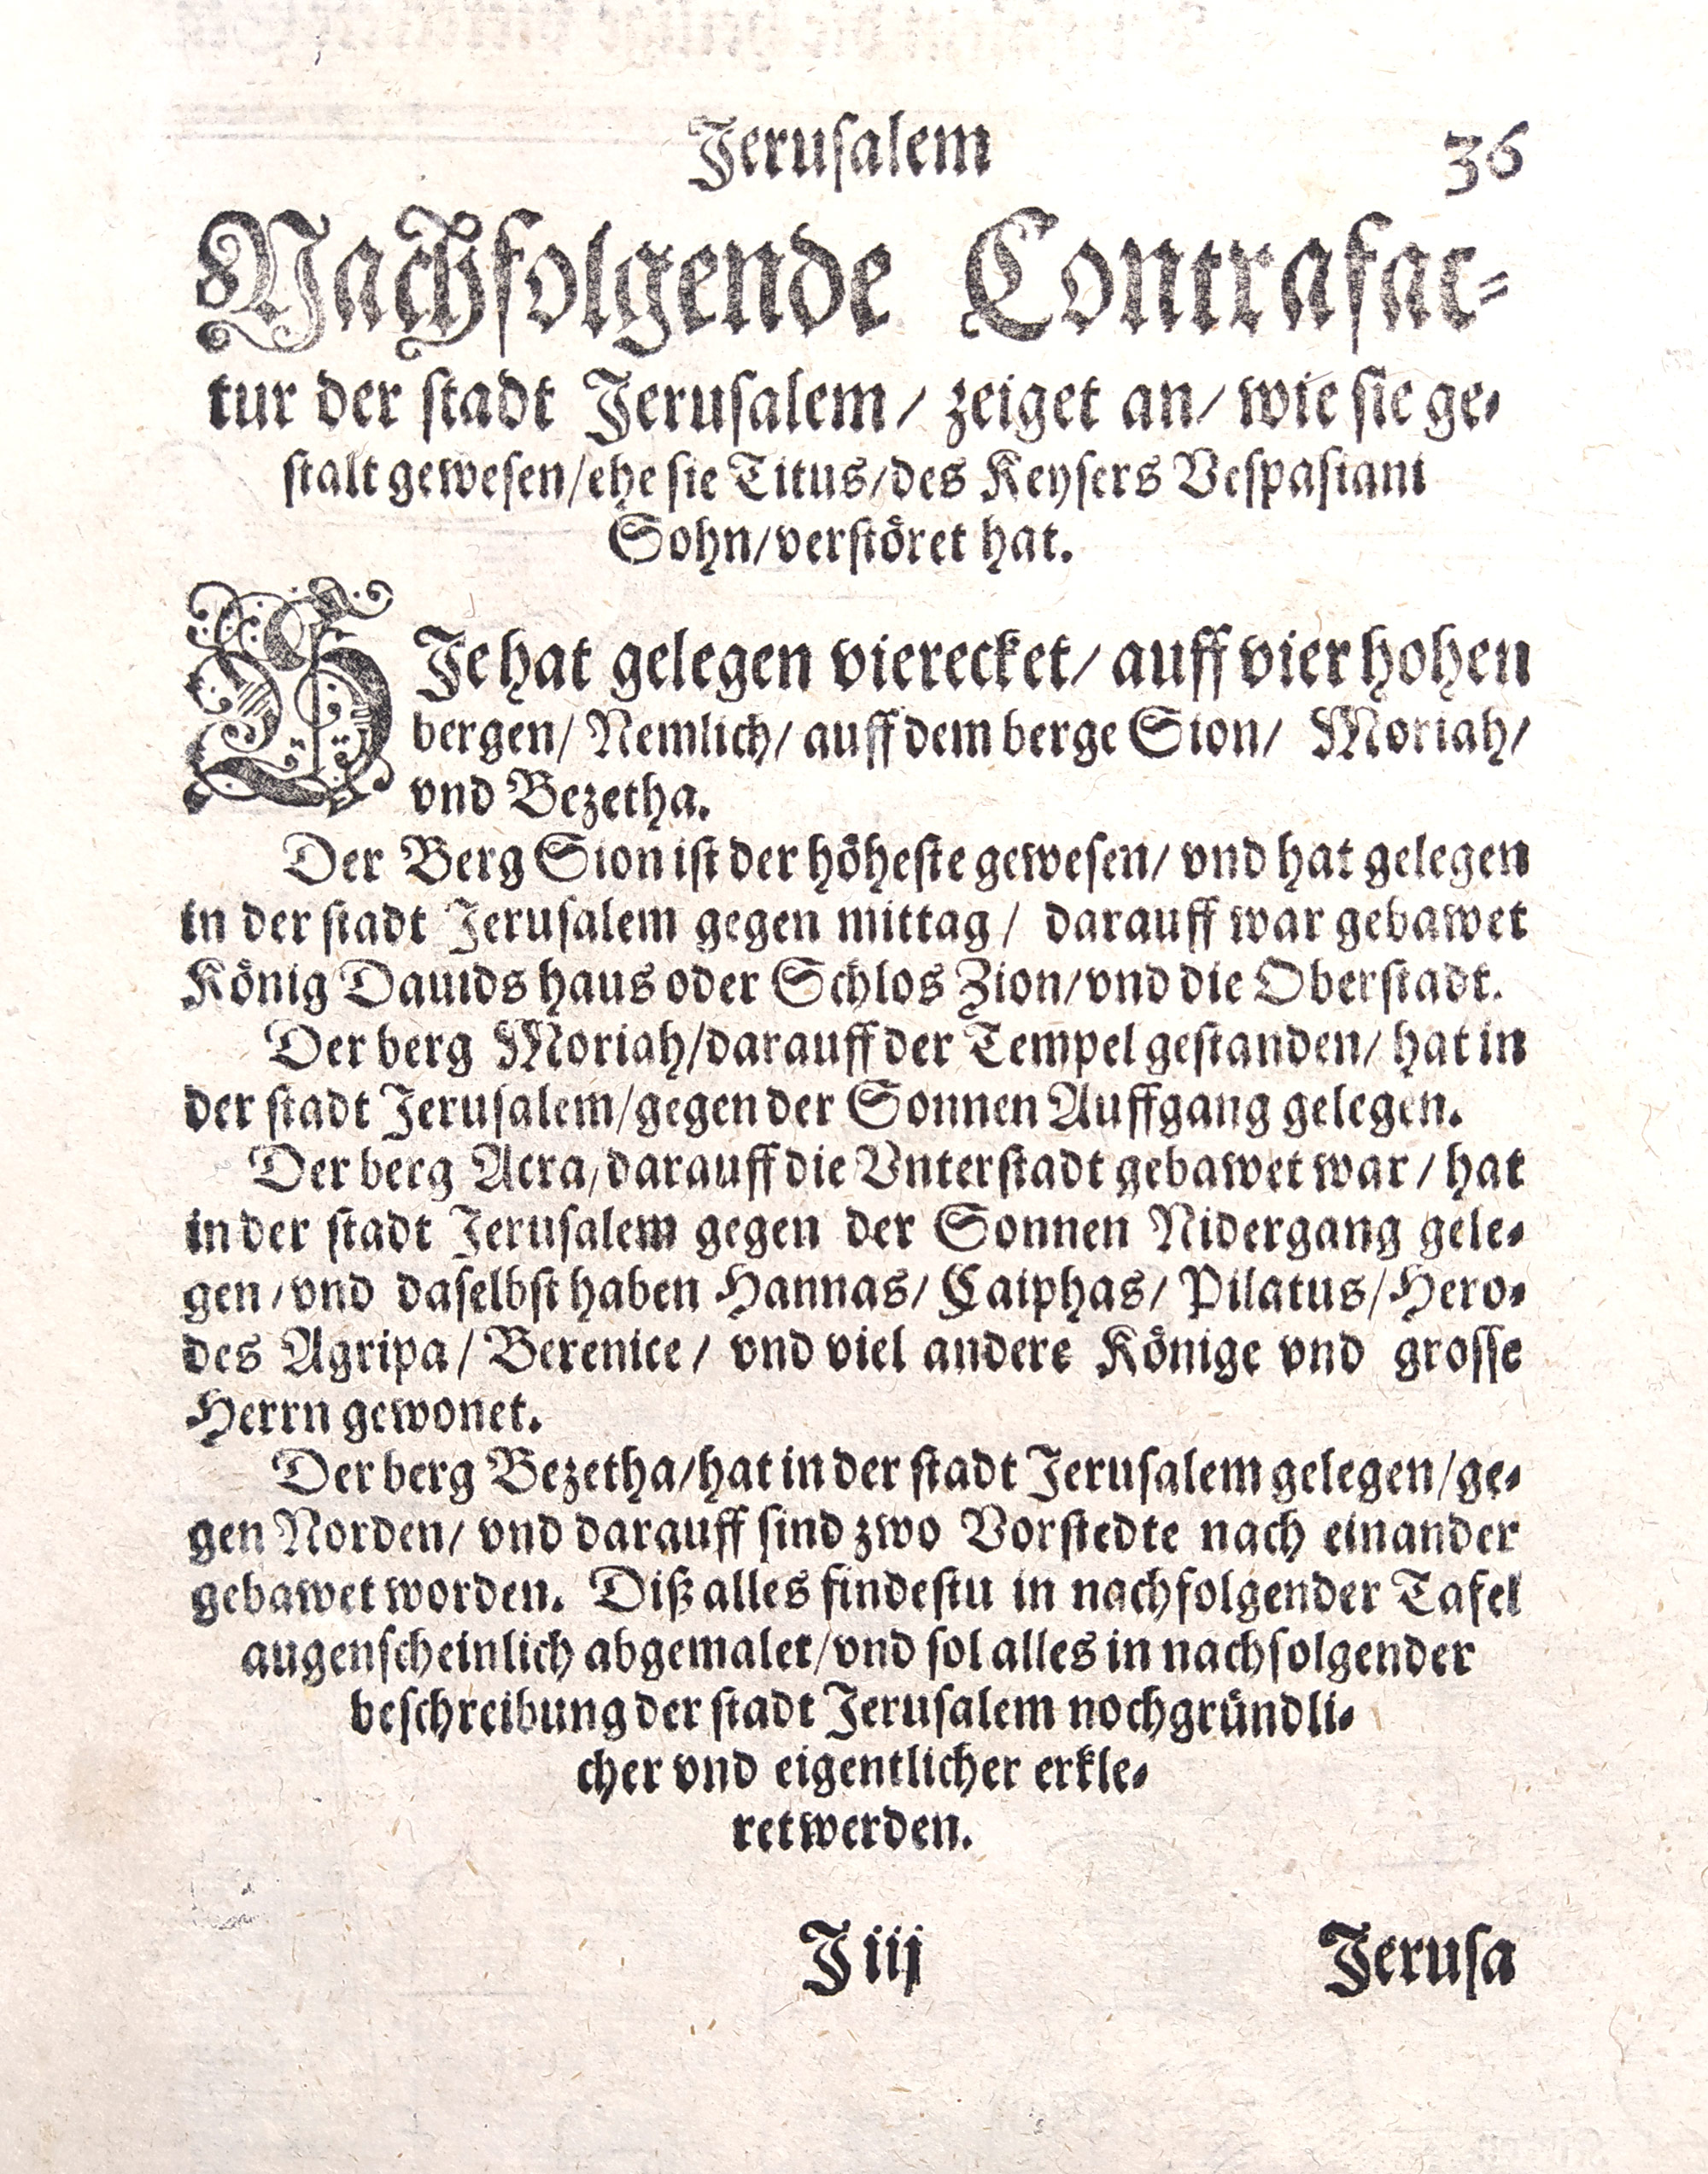 Jerusalem 36
Nachfolgende Contrafac-
tur der stadt Jerusalem / zeiget an / wie sie ge-
stalt gewesen / ehe sie Titus / des Keysers Vespasiani
Sohn / verstöret hat.
SJe hat gelegen vierecket / auff vier hohen
bergen / Nemlich / auff dem berge Sion / Moriah /
vnd Bezetha.
Der Berg Sion ist der höheste gewesen / vnd hat gelegen
in der stadt Jerusalem gegen mittag / darauff war gebawet
König Dauids haus oder Schlos Zion / vnd die Oberstadt.
Der berg Moriah / darauff der Tempel gestanden / hat in
der stadt Jerusalem / gegen der Sonnen Auffgang gelegen.
Der berg Acra / darauff die Vnterstadt gebawet war / hat
in der stadt Jerusalem gegen der Sonnen Nidergang gele-
gen / vnd daselbst haben Hannas / Caiphas / Pilatus / Hero-
des Agripa / Berenice / vnd viel andere Könige vnd grosse
Herrn gewonet.
Der berg Bezetha / hat in der stadt Jerusalem gelegen / ge-
gen Norden / vnd darauff sind zwo Vorstedte nach einander
gebawet worden. Diß alles findestu in nachfolgender Tafel
augenscheinlich abgemalet / vnd sol alles in nachfolgender
beschreibung der stadt Jerusalem noch gründli-
cher vnd eigentlicher erkle-
ret werden.
J iij Jerusa